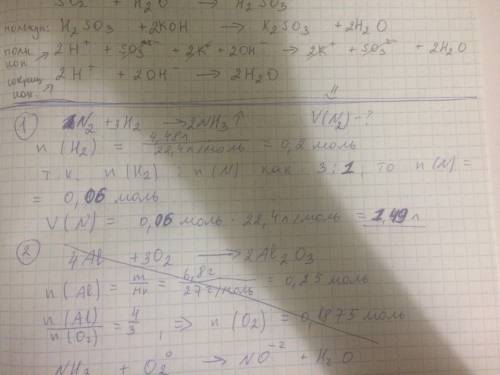 SO₂ + H₂O → H₂SO₃
молекул: H₂SO₃ + 2KOH → K₂SO₃ + 2H₂O
полн. ион. 2H⁺ + SO₃²⁻ + 2K⁺ + 2OH⁻ → 2K⁺ + SO₃²⁻ + 2H₂O
сокращ. ион. 2H⁺ + 2OH⁻ → 2H₂O
① 1N₂ + 3H₂ → 2NH₃↑ V(N₂) - ?
n(H₂) = 4,48л / 22,4л/моль = 0,2 моль
т.к. n(H₂) : n(N) как 3:1, то n(N) =
= 0,06 моль
V(N) = 0,06 моль · 22,4л/моль = 1,49л
② 4Al + 3O₂ → 2Al₂O₃
n(Al) = m/Mr = 6,8г / 27г/моль = 0,25 моль
n(Al)/n(O₂) = 4/3, => n(O₂) = 0,1875 моль
NH₃ + O₂⁰ → NO⁻² + H₂O